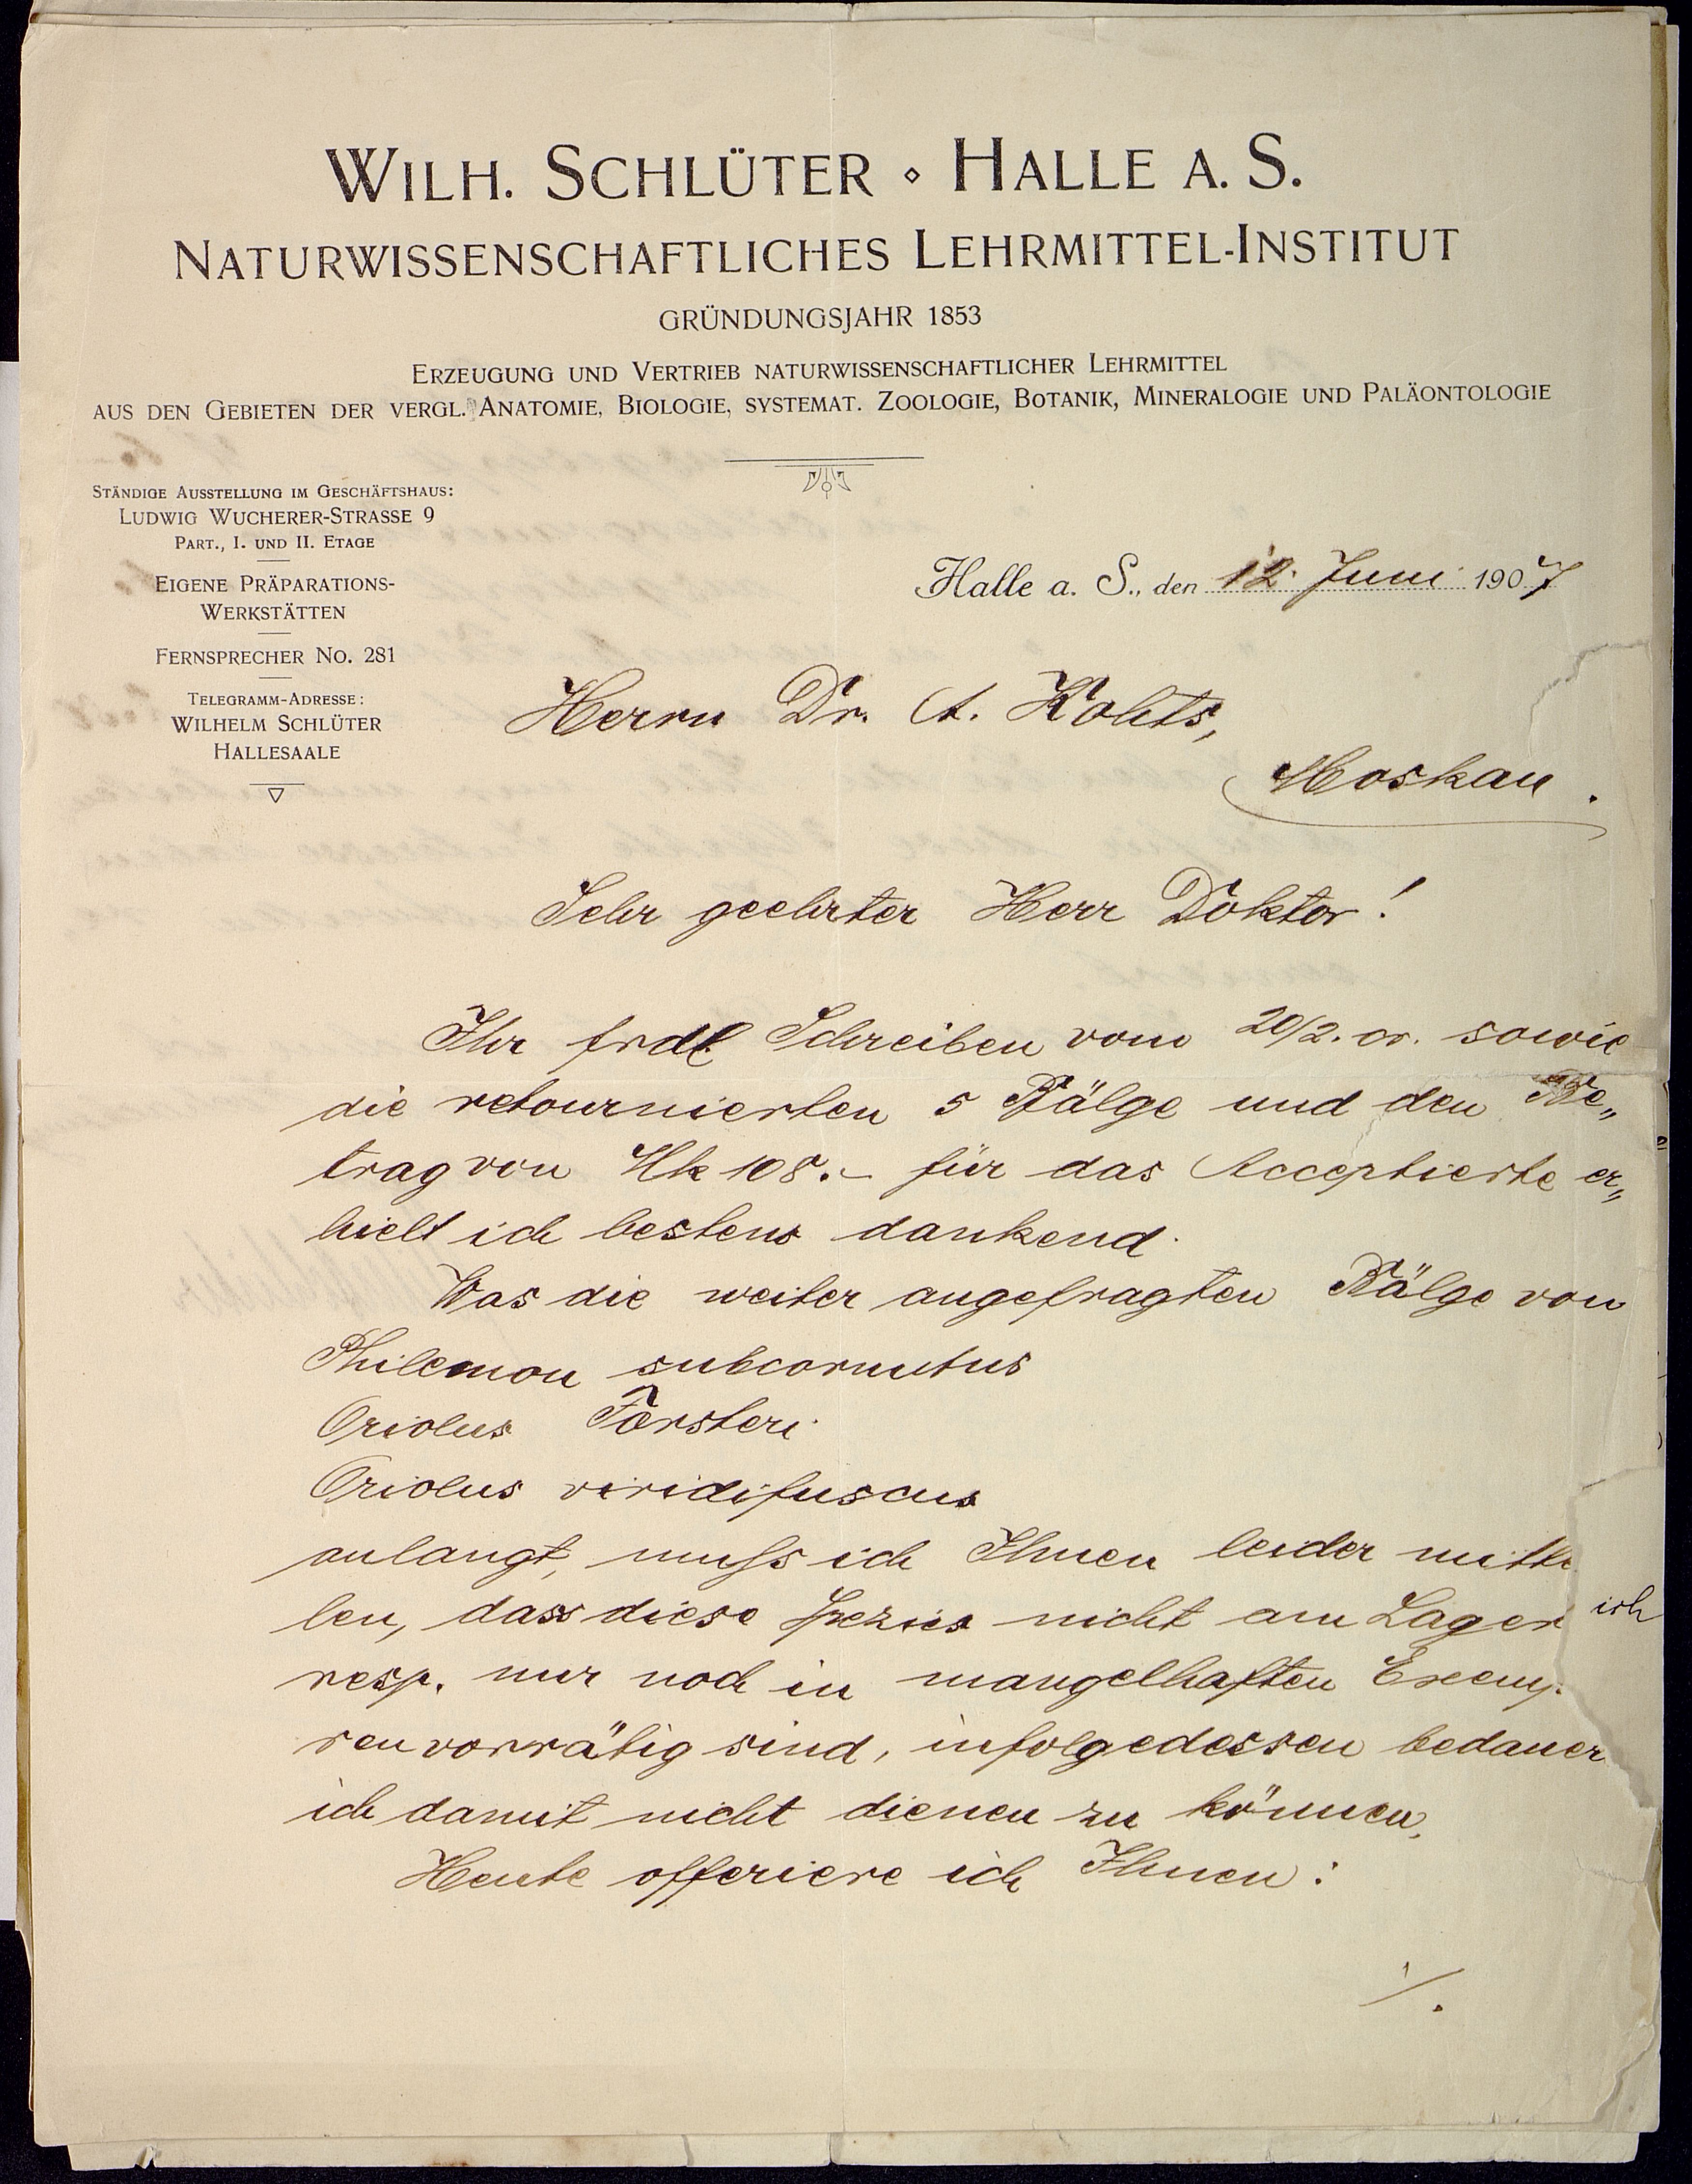 WILH. SCHLÜTER ⋄ HALLE A. S.
NATURWISSENSCHAFTLICHES LEHRMITTEL-INSTITUT
GRÜNDUNGSJAHR 1853
ERZEUGUNG UND VERTRIEB NATURWISSENSCHAFTLICHER LEHRMITTEL
AUS DEN GEBIETEN DER VERGL. ANATOMIE, BIOLOGIE, SYSTEMAT. ZOOLOGIE, BOTANIK, MINERALOGIE UND PALÄONTOLOGIE
STÄNDIGE AUSSTELLUNG IM GESCHÄFTSHAUS:
LUDWIG WUCHERER-STRASSE 9
PART., I. UND II. ETAGE
EIGENE PRÄPARATIONS-
WERKSTÄTTEN
FERNSPRECHER NO. 281
TELEGRAMM-ADRESSE:
WILHELM SCHLÜTER
HALLESAALE
Halle a. S., den 12. Juni 1907
Herrn Dr. A. Kohts,
Moskau.
Sehr geehrter Herr Doktor!
Ihr frdl. Schreiben vom 20/2. cr. sowie
die retournierten 5 Bälge und den Be„
trag von Mk 108.- für das Acceptierte er„
hielt ich bestens dankend.
Was die weiter angefragten Bälge von
Philemon subcornutus
Oriolus Forsteri
Oriolus viridifuscus
anlangt, muss ich Ihnen leider mittei
len, dass diese Spezies nicht am Lager
resp. nur noch in mangelhaften Exemp
ren vorrätig sind, infolgedessen bedauer
ich damit nicht dienen zu können.
Heute offeriere ich Ihnen:
/.